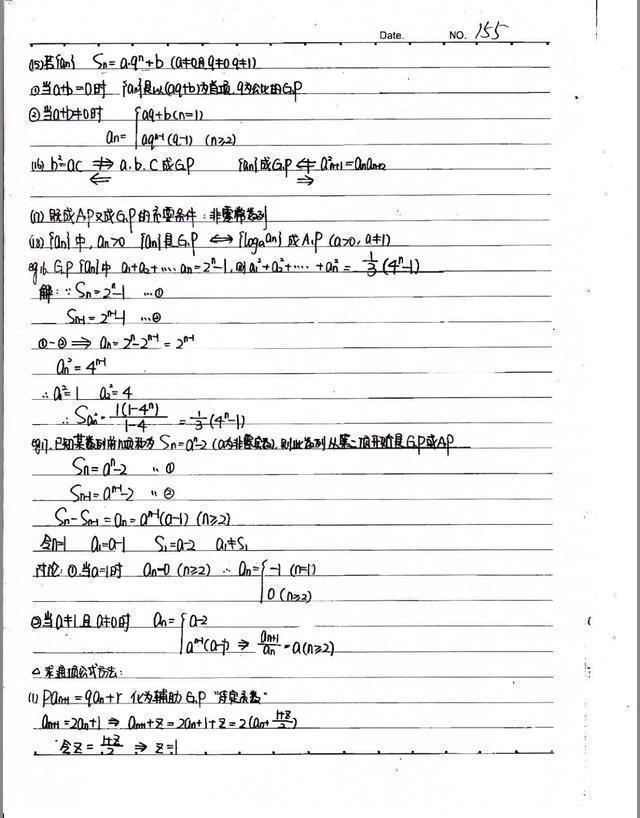 Date. NO. 155
(15) 若{an} Sn = a·qⁿ + b (a≠0且q≠0 q≠1)
① 当a+b=0时 {an}是以(aq+b)为首项, q为公比的G.P
② 当a+b≠0时 an = { aq+b (n=1)
aqⁿ⁻¹(q-1) (n≥2)
(16) b²=ac ⇏ a.b.c成G.P {an}成G.P ⇍ a²n+1=anan+2
⇐ ⇒
(17) 既成A.P又成G.P的充要条件: 非零常数列
(18) {an}中, an>0 {an}是G.P ⇔ {logₐan}成A.P (a>0, a≠1)
eg16. G.P {an}中 a₁+a₂+…an=2ⁿ-1, 则a₁²+a₂²+…+an²= 1/3(4ⁿ-1)
解: ∵ Sn=2ⁿ-1 …①
Sn-1=2ⁿ⁻¹-1 …②
①-② ⇒ an=2ⁿ-2ⁿ⁻¹=2ⁿ⁻¹
an²=4ⁿ⁻¹
∴ a₁²=1 a₂²=4
∴ San²= 1(1-4ⁿ)/1-4 = 1/3(4ⁿ-1)
eg17. 已知某数列前n项和为Sn=aⁿ-2 (a为非零实数), 则此数列从第二项开始是G.P或A.P
Sn=aⁿ-2 ..①
Sn-1=aⁿ⁻¹-2 ..②
Sn-Sn-1=an=aⁿ⁻¹(a-1) (n≥2)
令n=1 a₁=a-1 S₁=a-2 a₁≠S₁
讨论: ①当a=1时 an=0 (n≥2) ∴ an={ -1 (n=1)
0 (n≥2)
②当a≠1且a≠0时 an={ a-2
aⁿ⁻¹(a-1) ⇒ an+1/an=a (n≥2)
△求通项公式方法:
(1) Pan+1=qan+r 化为辅助G.P "待定系数"
an+1=2an+1 ⇒ an+1+z=2an+1+z=2(an+ 1+z/2)
令z= 1+z/2 ⇒ z=1